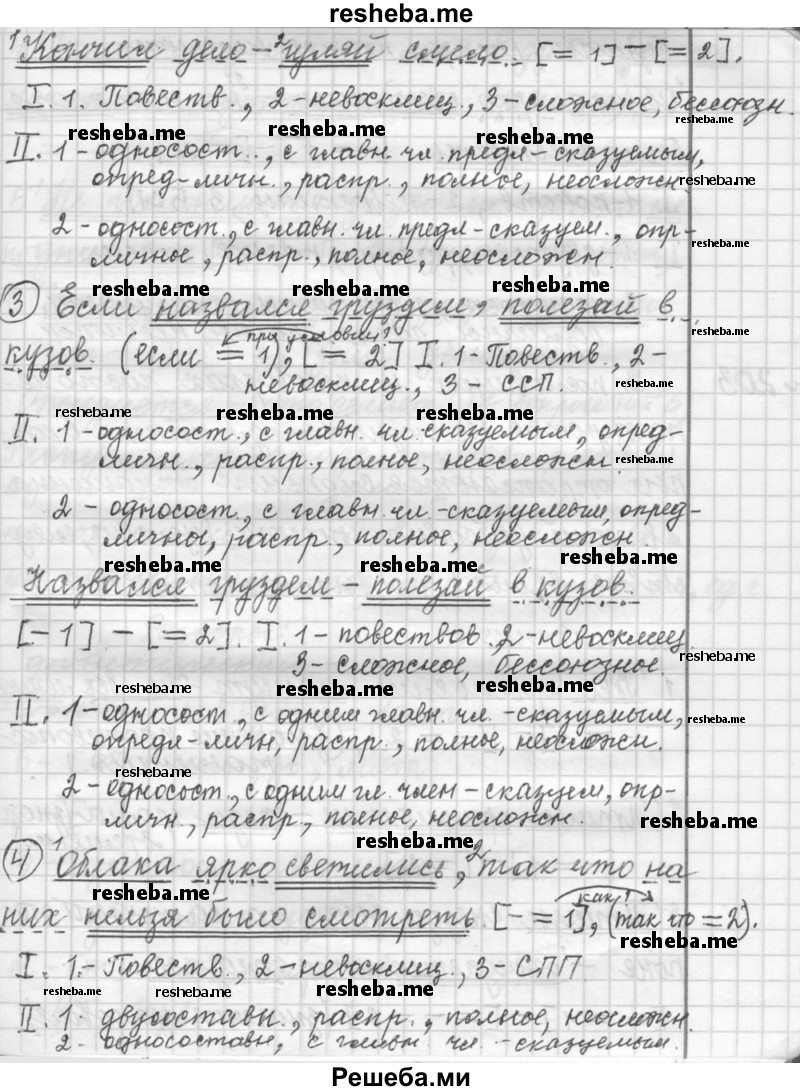 resheba.me
1 Кончил дело – 2 гуляй смело. [= 1] – [= 2].
I. 1. Повеств., 2 - невосклиц., 3 - сложное, бессоюзн.
resheba.me resheba.me resheba.me resheba.me
II. 1 - односост., с главн. чл. предл - сказуемым,
опред - личн., распр., полное, неосложн.
resheba.me resheba.me resheba.me resheba.me
2 - односост., с главн. чл. предл - сказуем., опр-
личное, распр., полное, неосложн.
resheba.me
resheba.me resheba.me resheba.me
3 Если назвался груздем, полезай в
кузов. (если = 1), [= 2] I. 1 - Повеств., 2 -
при условии?
resheba.me
невосклиц., 3 - ССП.
resheba.me resheba.me resheba.me resheba.me
II. 1 - односост., с главн. чл. сказуемым, опред-
личн., распр., полное, неосложн.
resheba.me resheba.me resheba.me resheba.me
2 - односост., с главн. чл. - сказуемым, опред-
личны, распр., полное, неосложн.
resheba.me resheba.me resheba.me
Назвался груздем – полезай в кузов.
[- 1] – [= 2]. I. 1 - повествов. 2 - невосклиц.
3 - сложное, бессоюзное.
resheba.me
resheba.me resheba.me resheba.me
II. 1 - односост., с одним главн. чл. - сказуемым,
resheba.me
определ - личн, распр., полное, неосложн.
resheba.me
2 - односост., с одним гл. член - сказуем, опр-
личн., распр., полное, неосложн.
resheba.me resheba.me
4 1 Облака ярко светились, 2 так что на
resheba.me
них нельзя было смотреть. [- = 1], (так что = 2).
как?
resheba.me
I. 1. - Повеств., 2 - невосклиц., 3 - СПП
resheba.me resheba.me resheba.me resheba.me
II. 1 - двусоставн., распр., - полное, неосложн.
2 - односоставн, с главн. чл. - сказуемым.
Решеба.ми